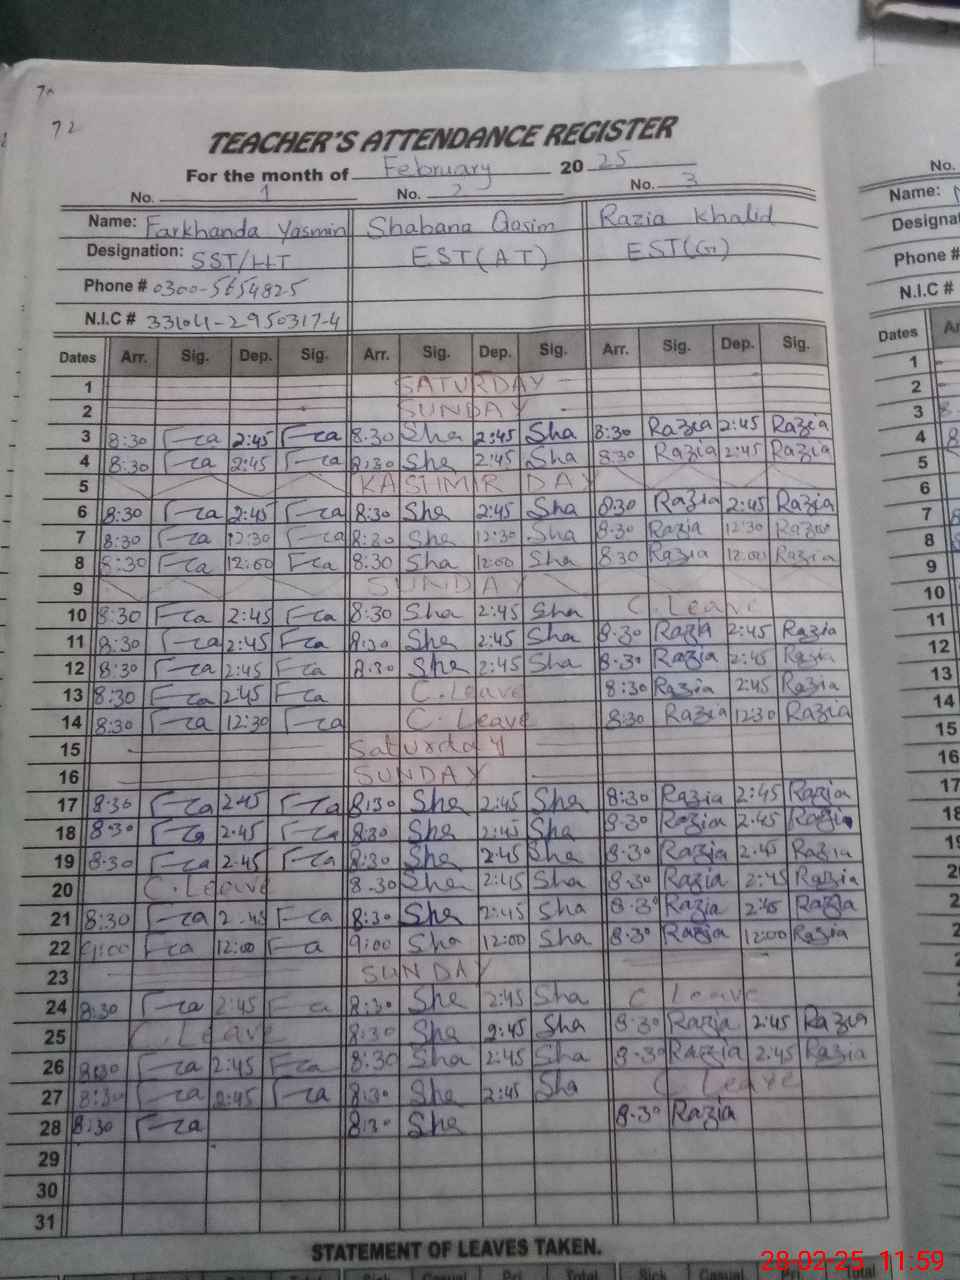 72
TEACHER'S ATTENDANCE REGISTER
For the month of February 2025
No. 1 No. 2 No. 3
Name: Farkhanda Yasmin Shabana Qasim Razia Khalid
Designation: SST/HT EST(AT) EST(G)
Phone # 0300-5654825
N.I.C # 33104-2950317-4
Dates Arr. Sig. Dep. Sig. Arr. Sig. Dep. Sig. Arr. Sig. Dep. Sig.
1 SATURDAY
2 SUNDAY
3 8:30 Fca 2:45 Fca 8:30 Sha 2:45 Sha 8:30 Razia 2:45 Razia
4 8:30 Fca 2:45 Fca 8:30 Sha 2:45 Sha 8:30 Razia 2:45 Razia
5 KASHMIR DAY
6 8:30 Fca 2:45 Fca 8:30 Sha 2:45 Sha 8:30 Razia 2:45 Razia
7 8:30 Fca 12:30 Fca 8:30 Sha 12:30 Sha 8:30 Razia 12:30 Razia
8 8:30 Fca 12:00 Fca 8:30 Sha 12:00 Sha 8:30 Razia 12:00 Razia
9 SUNDAY
10 8:30 Fca 2:45 Fca 8:30 Sha 2:45 Sha C.Leave
11 8:30 Fca 2:45 Fca 8:30 Sha 2:45 Sha 8:30 Razia 2:45 Razia
12 8:30 Fca 2:45 Fca 8:30 Sha 2:45 Sha 8:30 Razia 2:45 Razia
13 8:30 Fca 2:45 Fca C.Leave 8:30 Razia 2:45 Razia
14 8:30 Fca 12:30 Fca C.Leave 8:30 Razia 12:30 Razia
15 Saturday
16 SUNDAY
17 8:30 Fca 2:45 Fca 8:30 Sha 2:45 Sha 8:30 Razia 2:45 Razia
18 8:30 Fca 2:45 Fca 8:30 Sha 2:45 Sha 8:30 Razia 2:45 Razia
19 8:30 Fca 2:45 Fca 8:30 Sha 2:45 Sha 8:30 Razia 2:45 Razia
20 C.Leave 8:30 Sha 2:45 Sha 8:30 Razia 2:45 Razia
21 8:30 Fca 2:45 Fca 8:30 Sha 2:45 Sha 8:30 Razia 2:45 Razia
22 9:00 Fca 12:00 Fca 9:00 Sha 12:00 Sha 8:30 Razia 12:00 Razia
23 SUNDAY
24 8:30 Fca 2:45 Fca 8:30 Sha 2:45 Sha C Leave
25 C.Leave 8:30 Sha 2:45 Sha 8:30 Razia 2:45 Razia
26 8:30 Fca 2:45 Fca 8:30 Sha 2:45 Sha 8:30 Razia 2:45 Razia
27 8:30 Fca 2:45 Fca 8:30 Sha 2:45 Sha C Leave
28 8:30 Fca 8:30 Sha 8:30 Razia
29
30
31
STATEMENT OF LEAVES TAKEN.
No.
Name:
Phone #
N.I.C #
Dates
1
2
3
4
5
6
7
8
9
10
11
12
13
14
15
16
17
28-02-25 11:59